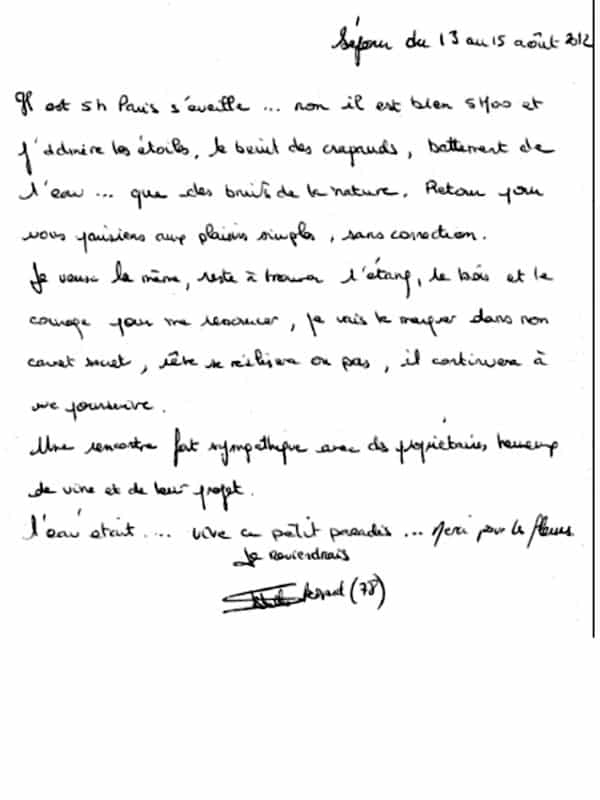 Séjour du 13 au 15 août 2012
Il est 5h Paris s'éveille ... non il est bien 5h00 et
j'admire les étoiles, le bruit des crapauds, battement de
l'eau ... que des bruits de la nature. Retour pour
nous parisiens aux plaisirs simples, sans correction.
Je veux le même, reste à trouver l'étang, le bois et le
courage pour me ressourcer, je vais le marquer dans mon
carnet secret, rêve se réalisera ou pas, il continuera à
me poursuivre.
Une rencontre fort sympathique avec des propriétaires heureux
de vivre et de leur projet.
L'eau était .... vive ce petit paradis ... Merci pour les fleurs
Je reviendrais
(78)